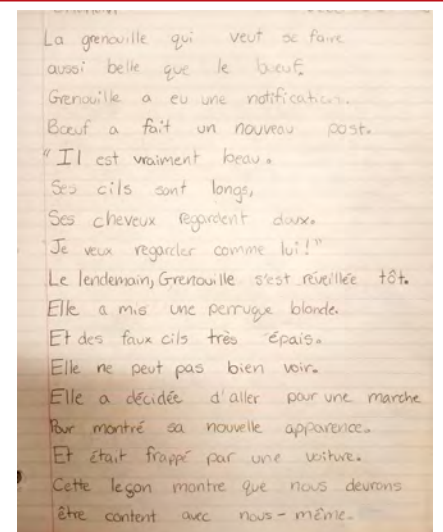 La grenouille qui veut se faire
aussi belle que le bœuf.
Grenouille a eu une notification.
Bœuf a fait un nouveau post.
"Il est vraiment beau.
Ses cils sont longs,
Ses cheveux regardent doux.
Je veux regarder comme lui!"
Le lendemain, Grenouille s'est réveillée tôt.
Elle a mis une perruque blonde.
Et des faux cils très épais.
Elle ne peut pas bien voir.
Elle a décidée d'aller pour une marche
Pour montré sa nouvelle apparence.
Et était frappé par une voiture.
Cette leçon montre que nous devrons
être content avec nous-même.